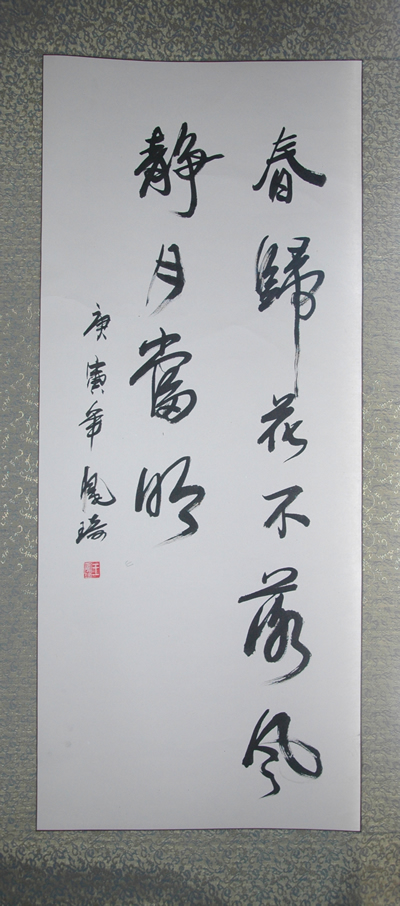 春歸花不落风
静月當明
庚寅年鳳琦